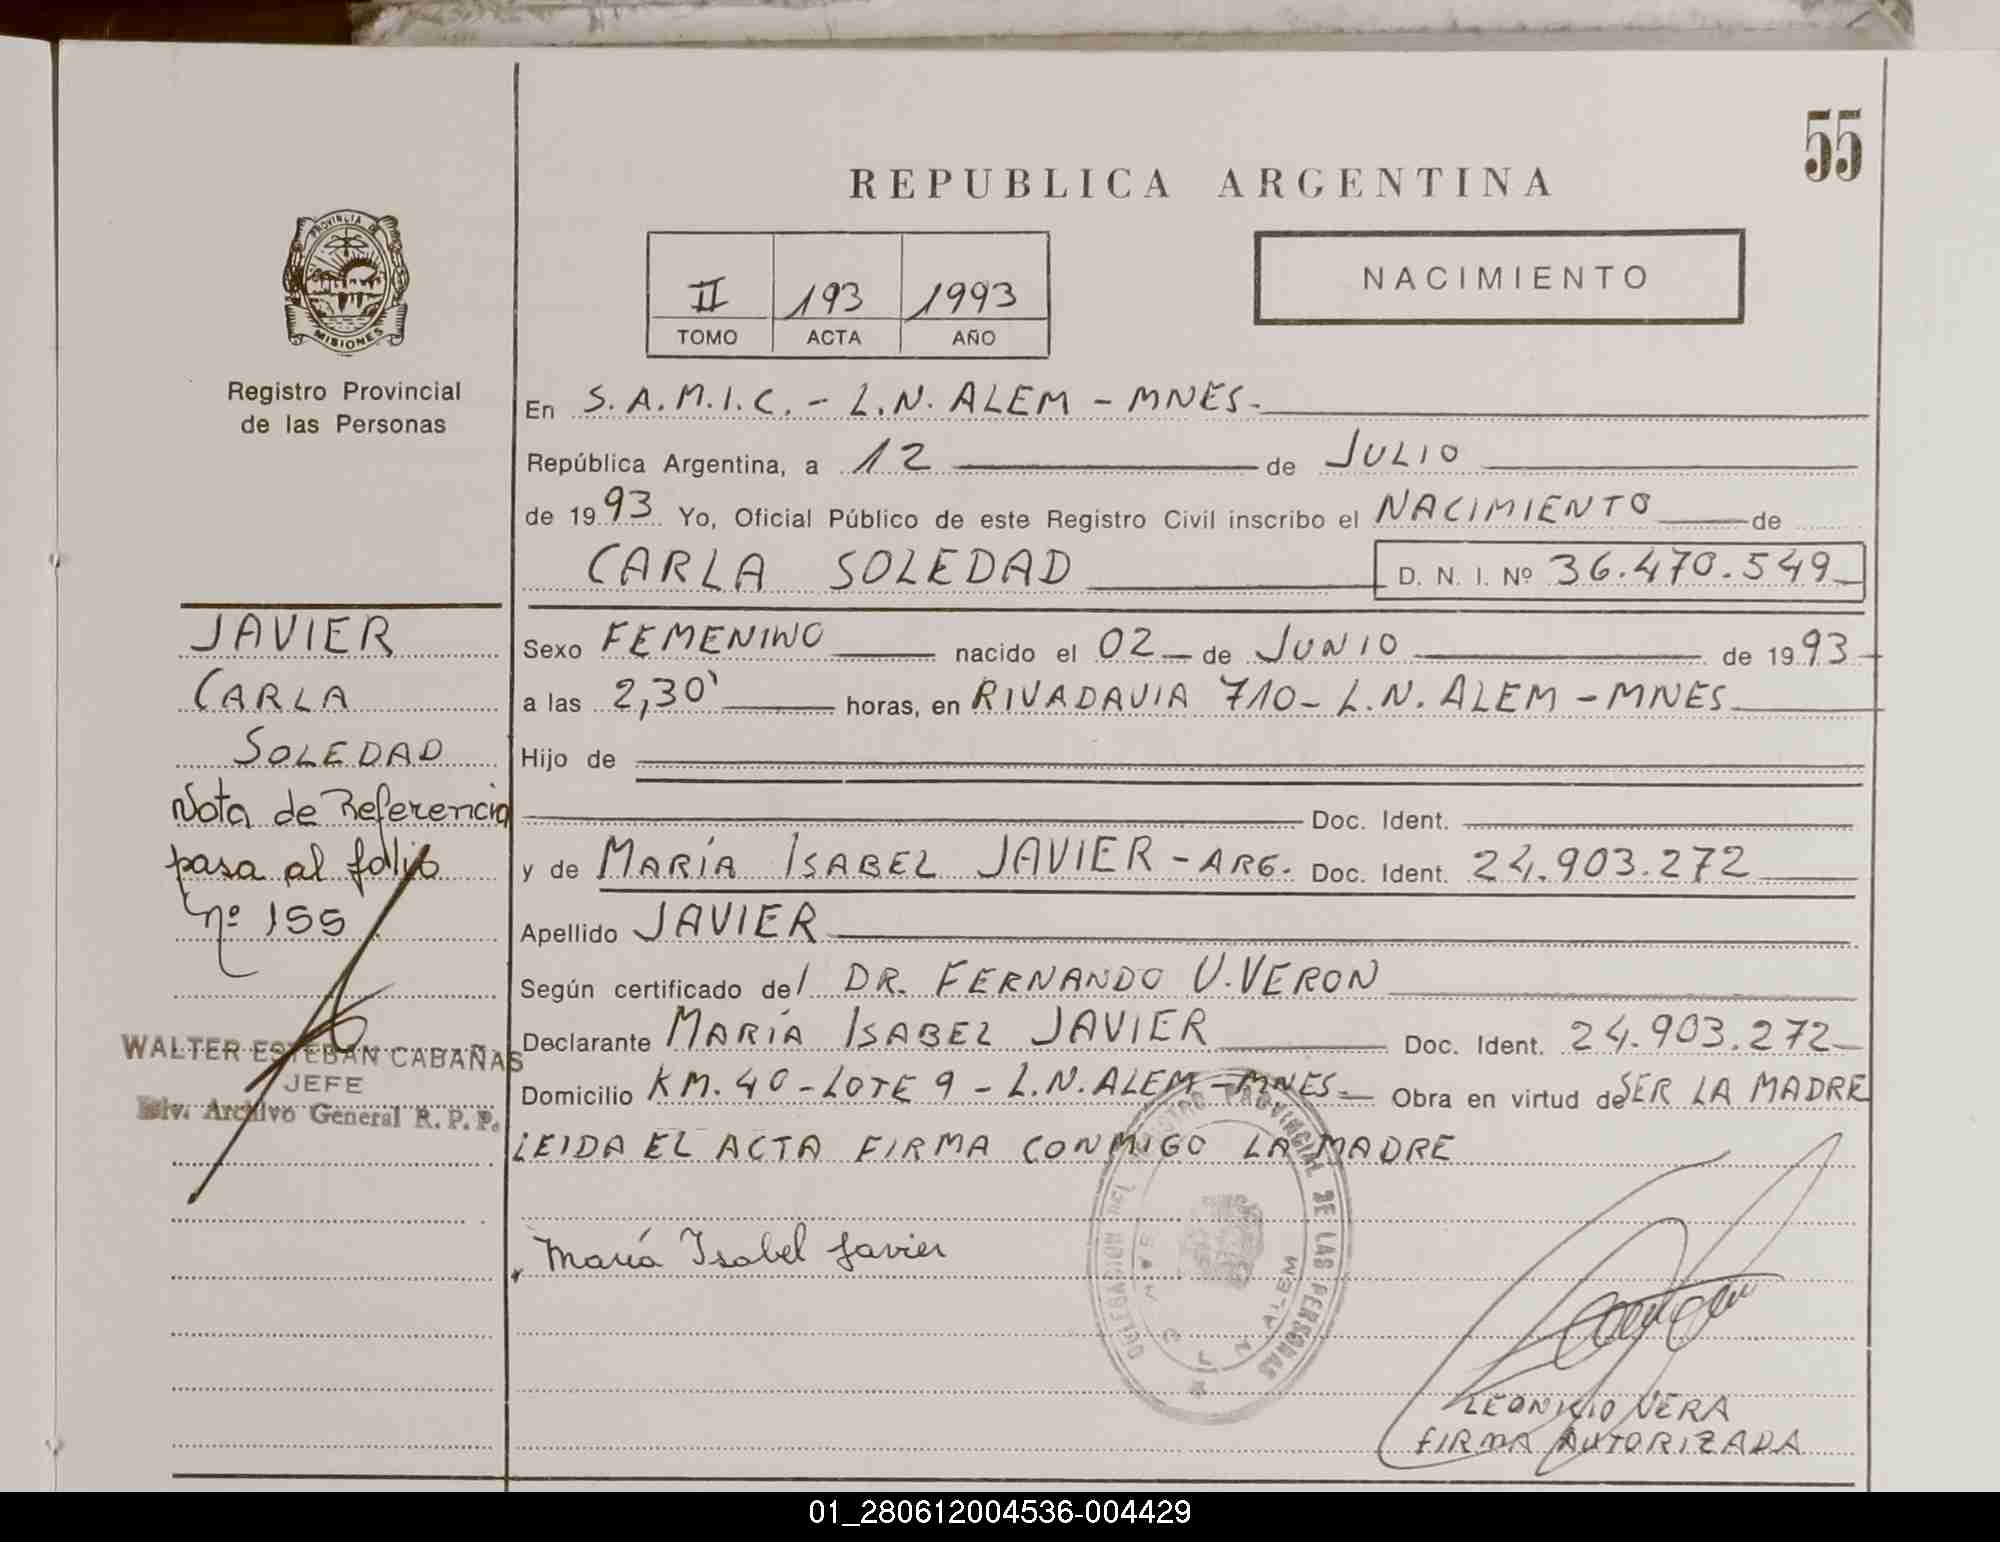 55
REPUBLICA ARGENTINA
PROVINCIA DE
MISIONES
Registro Provincial
de las Personas
II 193 1993
TOMO ACTA AÑO
NACIMIENTO
En S.A.M.I.C. - L.N. ALEM - MNES.
República Argentina, a 12 de JULIO
de 1993 Yo, Oficial Público de este Registro Civil inscribo el NACIMIENTO de
CARLA SOLEDAD D. N. I. Nº 36.470.549
Sexo FEMENINO nacido el 02 de JUNIO de 1993
a las 2,30' horas, en RIVADAVIA 710 - L.N. ALEM - MNES
Hijo de
Doc. Ident.
y de MARÍA ISABEL JAVIER - ARG. Doc. Ident. 24.903.272
Apellido JAVIER
Según certificado del DR. FERNANDO U. VERON
Declarante MARÍA ISABEL JAVIER Doc. Ident. 24.903.272
Domicilio KM. 40 - LOTE 9 - L.N. ALEM - MNES Obra en virtud de SER LA MADRE
LEIDA EL ACTA FIRMA CONMIGO LA MADRE
María Isabel Javier
LEONICIO VERA
FIRMA AUTORIZADA
JAVIER
CARLA
SOLEDAD
Nota de Referencia
pasa al folio
Nº 155
WALTER ESTEBAN CABAÑAS
JEFE
Div. Archivo General R. P. P.
DELEGACION DEL REGISTRO PROVINCIAL DE LAS PERSONAS
N ALEM
01_280612004536-004429